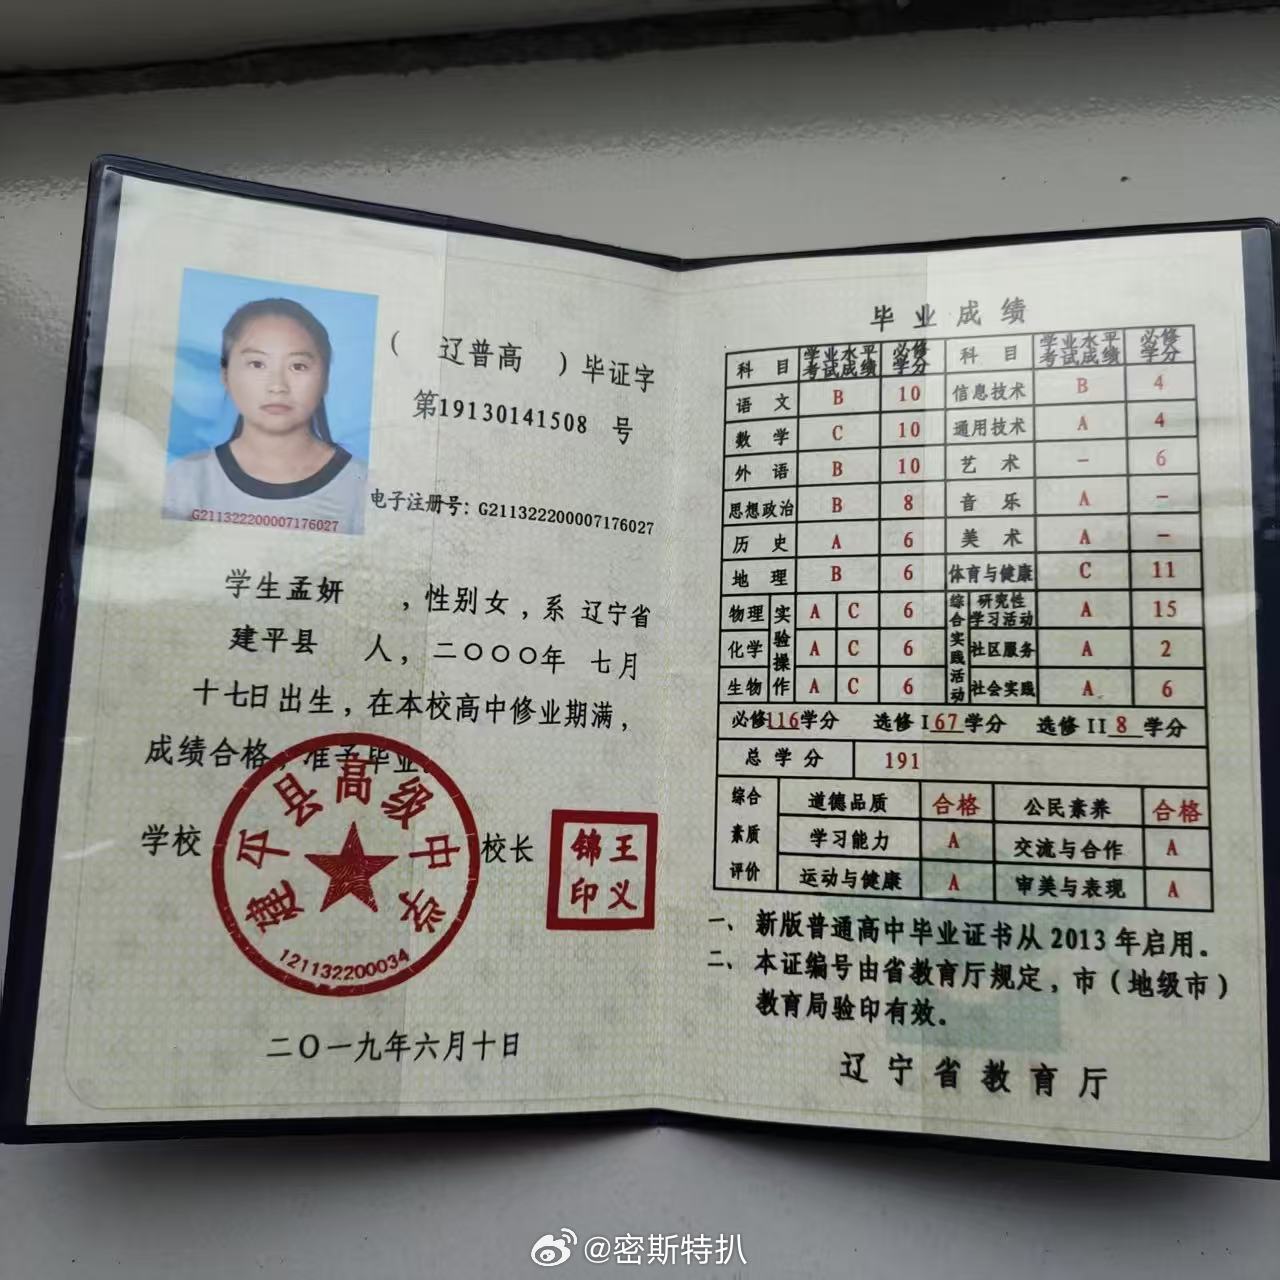 （ 辽普高 ）毕证字
第19130141508 号
电子注册号：G211322200007176027
G211322200007176027
学生孟妍 ，性别女，系 辽宁省
建平县 人，二〇〇〇年 七月
十七日出生，在本校高中修业期满，
成绩合格，准予毕业。
学校 校长
建平县高级中学
121132200034
王义锦印
二〇一九年六月十日
毕业成绩
科目 学业水平考试成绩 必修学分 科目 学业水平考试成绩 必修学分
语文 B 10 信息技术 B 4
数学 C 10 通用技术 A 4
外语 B 10 艺术 － 6
思想政治 B 8 音乐 A －
历史 A 6 美术 A －
地理 B 6 体育与健康 C 11
物理 实验操作 A C 6 综合实践活动 研究性学习活动 A 15
化学 A C 6 社区服务 A 2
生物 A C 6 社会实践 A 6
必修116学分 选修 I 67 学分 选修 II 8 学分
总学分 191
综合素质评价 道德品质 合格 公民素养 合格
学习能力 A 交流与合作 A
运动与健康 A 审美与表现 A
一、新版普通高中毕业证书从 2013 年启用。
二、本证编号由省教育厅规定，市（地级市）
教育局验印有效。
辽宁省教育厅
@密斯特扒